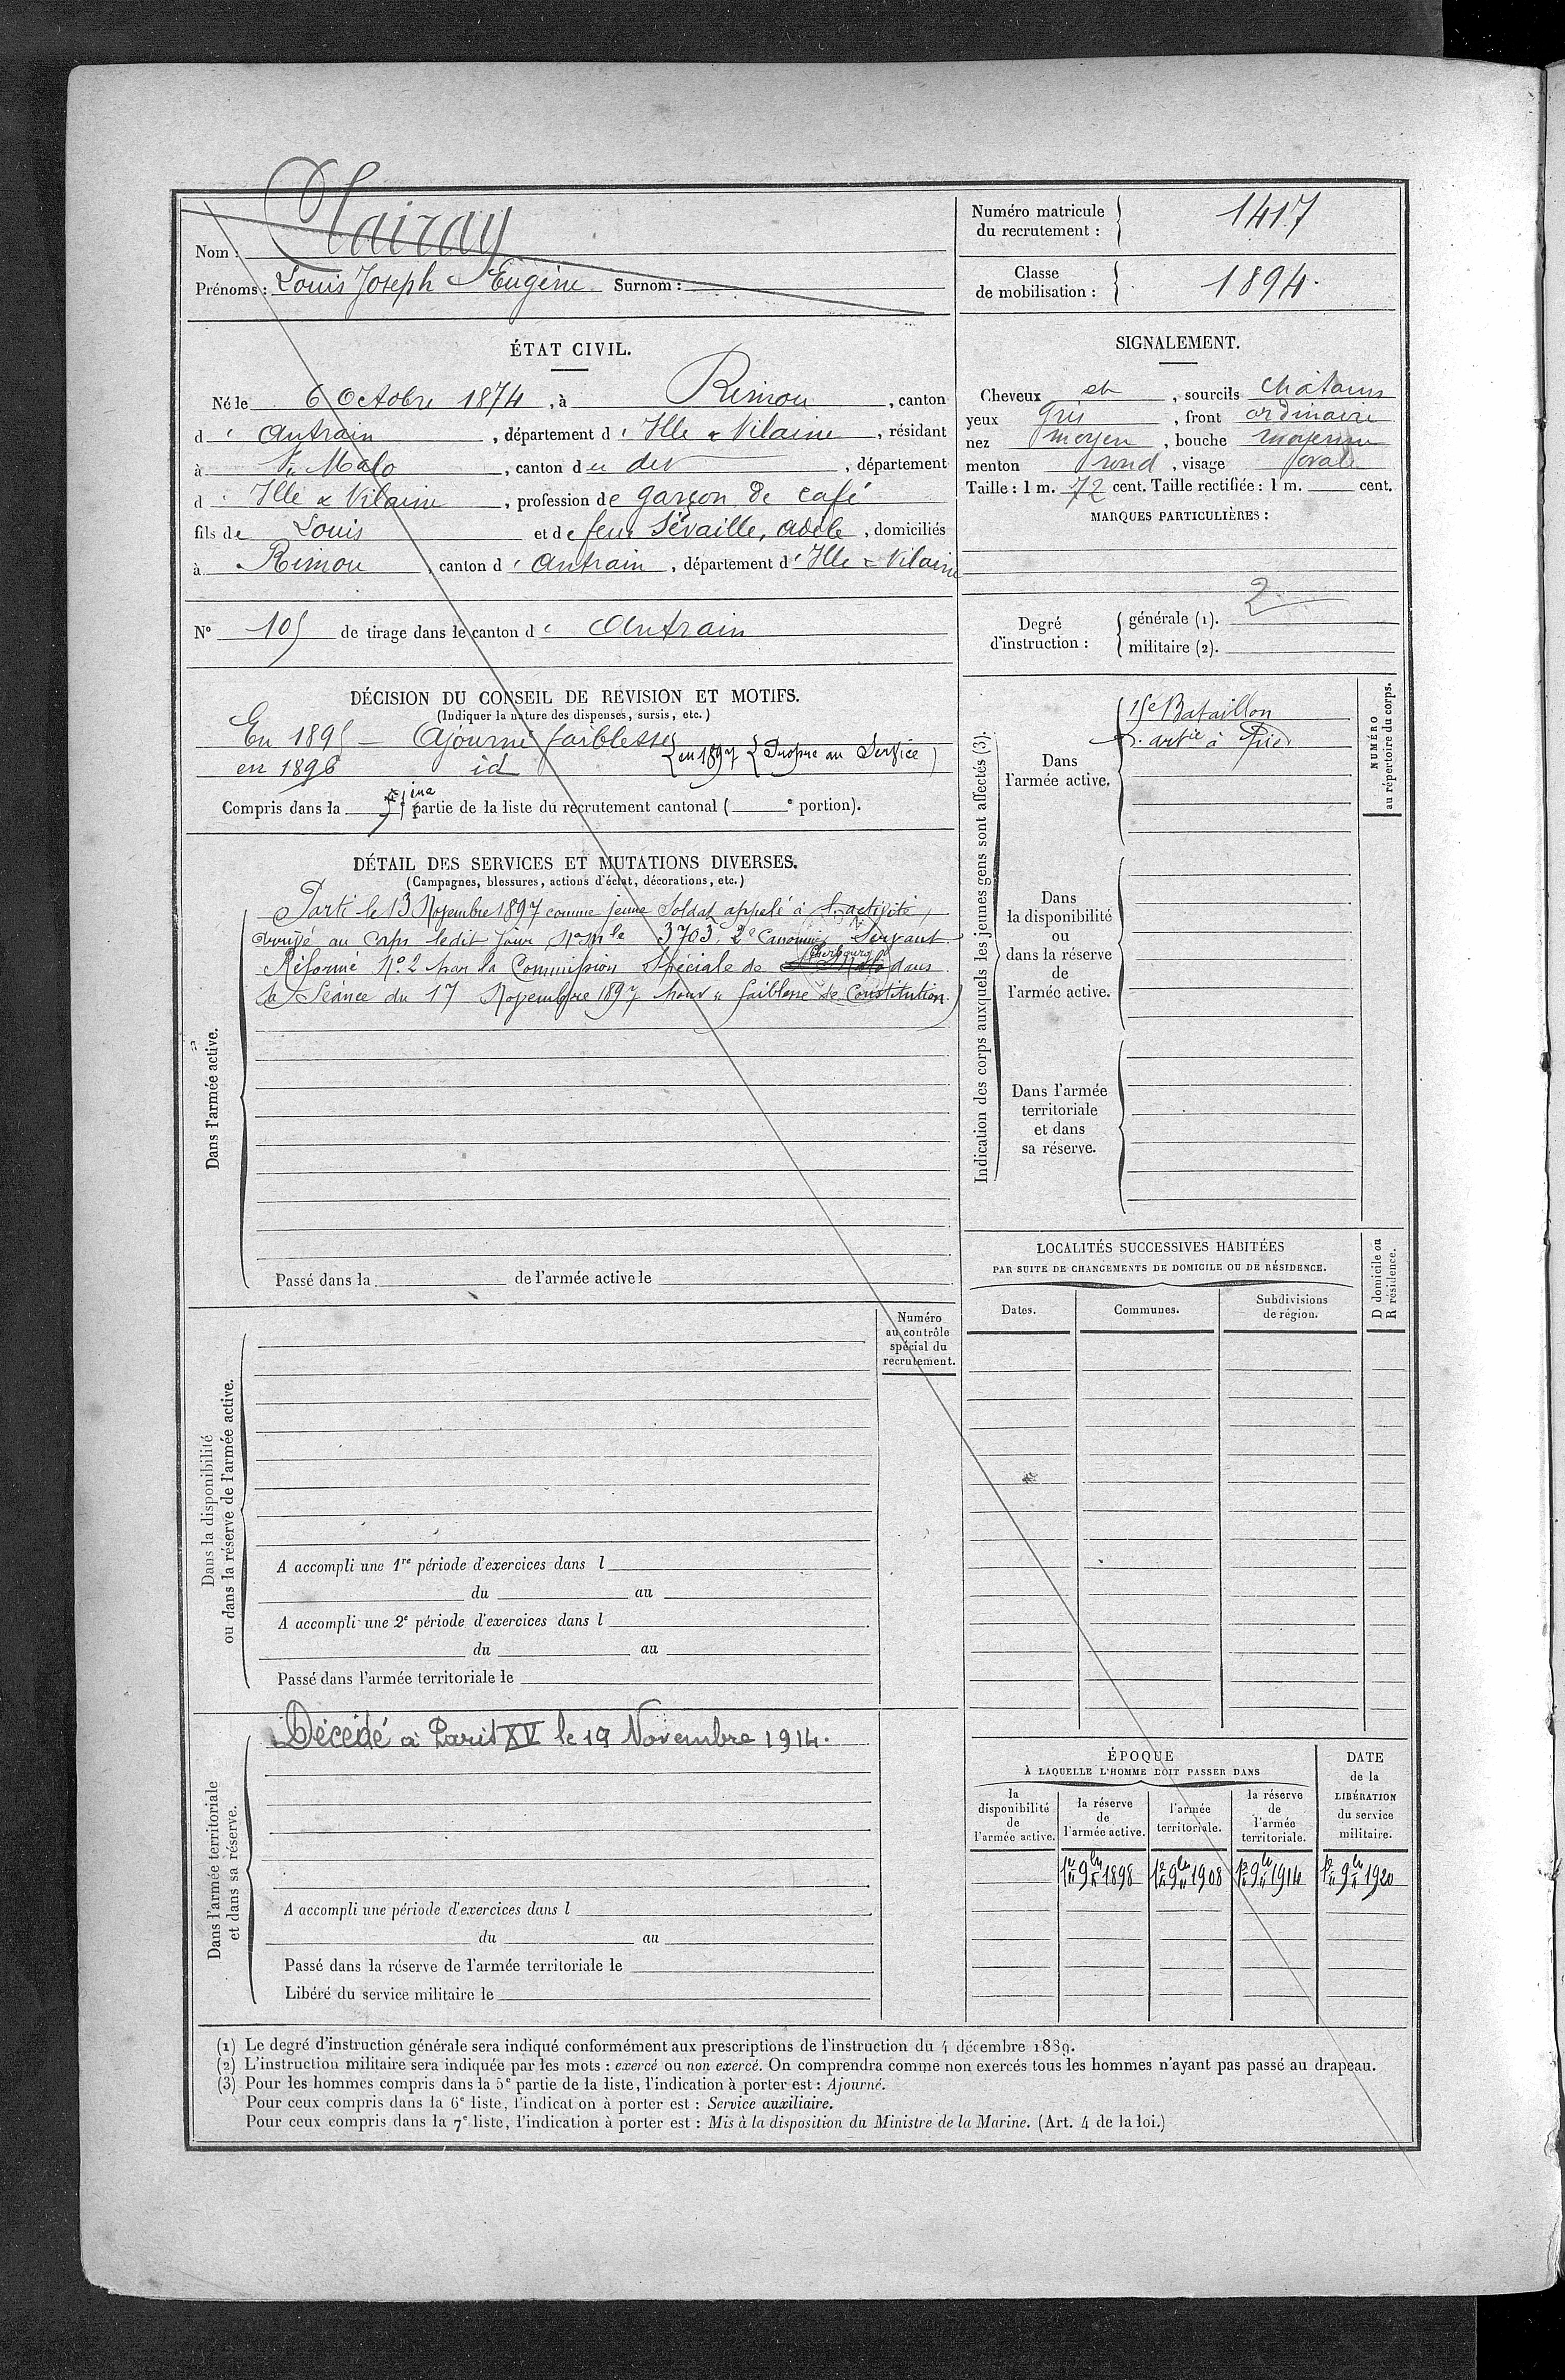 Nom : Clairay
Prénoms : Louis Joseph Eugène Surnom :
Numéro matricule du recrutement : 1417
Classe de mobilisation : 1894.
ÉTAT CIVIL.
Né le 6 Octobre 1874, à Rimou, canton
d' Antrain, département d' Ille & Vilaine, résidant
à St Malo, canton du dit, département
d' Ille & Vilaine, profession de garçon de café
fils de Louis et de feue Sévaille, Adèle, domiciliés
à Rimou, canton d' Antrain, département d' Ille & Vilaine
N° 105 de tirage dans le canton d' Antrain
SIGNALEMENT.
Cheveux et, sourcils châtains
yeux gris, front ordinaire
nez moyen, bouche moyenne
menton rond, visage ovale
Taille : 1 m. 72 cent. Taille rectifiée : 1 m. cent.
MARQUES PARTICULIÈRES :
Degré d'instruction :
générale (1). 2
militaire (2).
DÉCISION DU CONSEIL DE RÉVISION ET MOTIFS.
(Indiquer la nature des dispenses, sursis, etc.)
En 1895 – Ajourné faiblesse
en 1896 id { en 1897 { Propre au Service )
Compris dans la partie de la liste du recrutement cantonal ( e portion).
DÉTAIL DES SERVICES ET MUTATIONS DIVERSES.
(Campagnes, blessures, actions d'éclat, décorations, etc.)
Dans l'armée active.
Parti le 13 Novembre 1897 comme jeune Soldat appelé à l'activité,
arrivé au Corps ledit jour, No mle 3703, 2e Canonnier Servant
Réformé No 2 par la Commission Spéciale de Cherbourg dans
la Séance du 17 Novembre 1897 pour " faiblesse de Constitution. )
Passé dans la de l'armée active le
Indication des corps auxquels les jeunes gens sont affectés (3).
Dans l'armée active.
15e Bataillon
d'artie à Pied
Dans la disponibilité ou dans la réserve de l'armée active.
Dans l'armée territoriale et dans sa réserve.
NUMÉRO au répertoire du corps.
LOCALITÉS SUCCESSIVES HABITÉES
PAR SUITE DE CHANGEMENTS DE DOMICILE OU DE RÉSIDENCE.
Dates. Communes. Subdivisions de région.
D domicile ou R résidence.
Dans la disponibilité ou dans la réserve de l'armée active.
Numéro au contrôle spécial du recrutement.
A accompli une 1re période d'exercices dans l
du au
A accompli une 2e période d'exercices dans l
du au
Passé dans l'armée territoriale le
Dans l'armée territoriale et dans sa réserve.
Décédé à Paris XV le 19 Novembre 1914.
A accompli une période d'exercices dans l
du au
Passé dans la réserve de l'armée territoriale le
Libéré du service militaire le
ÉPOQUE
À LAQUELLE L'HOMME DOIT PASSER DANS
la disponibilité de l'armée active.
la réserve de l'armée active.
l'armée territoriale.
la réserve de l'armée territoriale.
DATE de la LIBÉRATION du service militaire.
1er 9bre 1898 1er 9bre 1908 1er 9bre 1914 1er 9bre 1920
(1) Le degré d'instruction générale sera indiqué conformément aux prescriptions de l'instruction du 4 décembre 1889.
(2) L'instruction militaire sera indiquée par les mots : exercé ou non exercé. On comprendra comme non exercés tous les hommes n'ayant pas passé au drapeau.
(3) Pour les hommes compris dans la 5e partie de la liste, l'indication à porter est : Ajourné.
Pour ceux compris dans la 6e liste, l'indication à porter est : Service auxiliaire.
Pour ceux compris dans la 7e liste, l'indication à porter est : Mis à la disposition du Ministre de la Marine. (Art. 4 de la loi.)